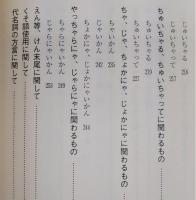 ちゅいちゃる 216
ちゅいちゃって 217
ちゅいちゃる、ちゅいちゃってに関わるもの
ちゅいちゃる 219
ちゅいちゃって 227
ちゃ、じゃ、ちょかにゃ、じょかにゃに関わるもの…
ちゃいかん 235
じゃいかん 242
ちょかにゃ、じょかにゃいかん 244
やっちゃらにゃ、じゃらにゃに関わるもの
ちゃらにゃいかん 249
じゃらにゃいかん 253
えん等、けん末尾に関して
くそ頭使用に関して
代名詞の方言に関して